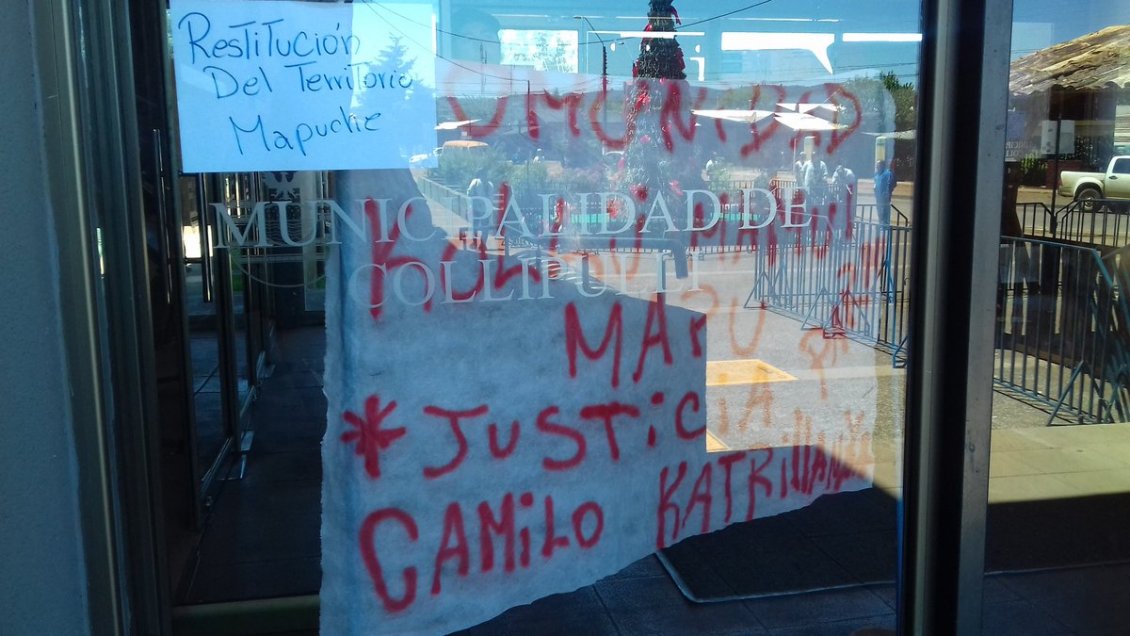 Restitución
Del Territorio
Mapuche
MUNICIPALIDAD DE
COLLIPULLI
MAPU
*JUSTICIA
CAMILO KATRILLANKA